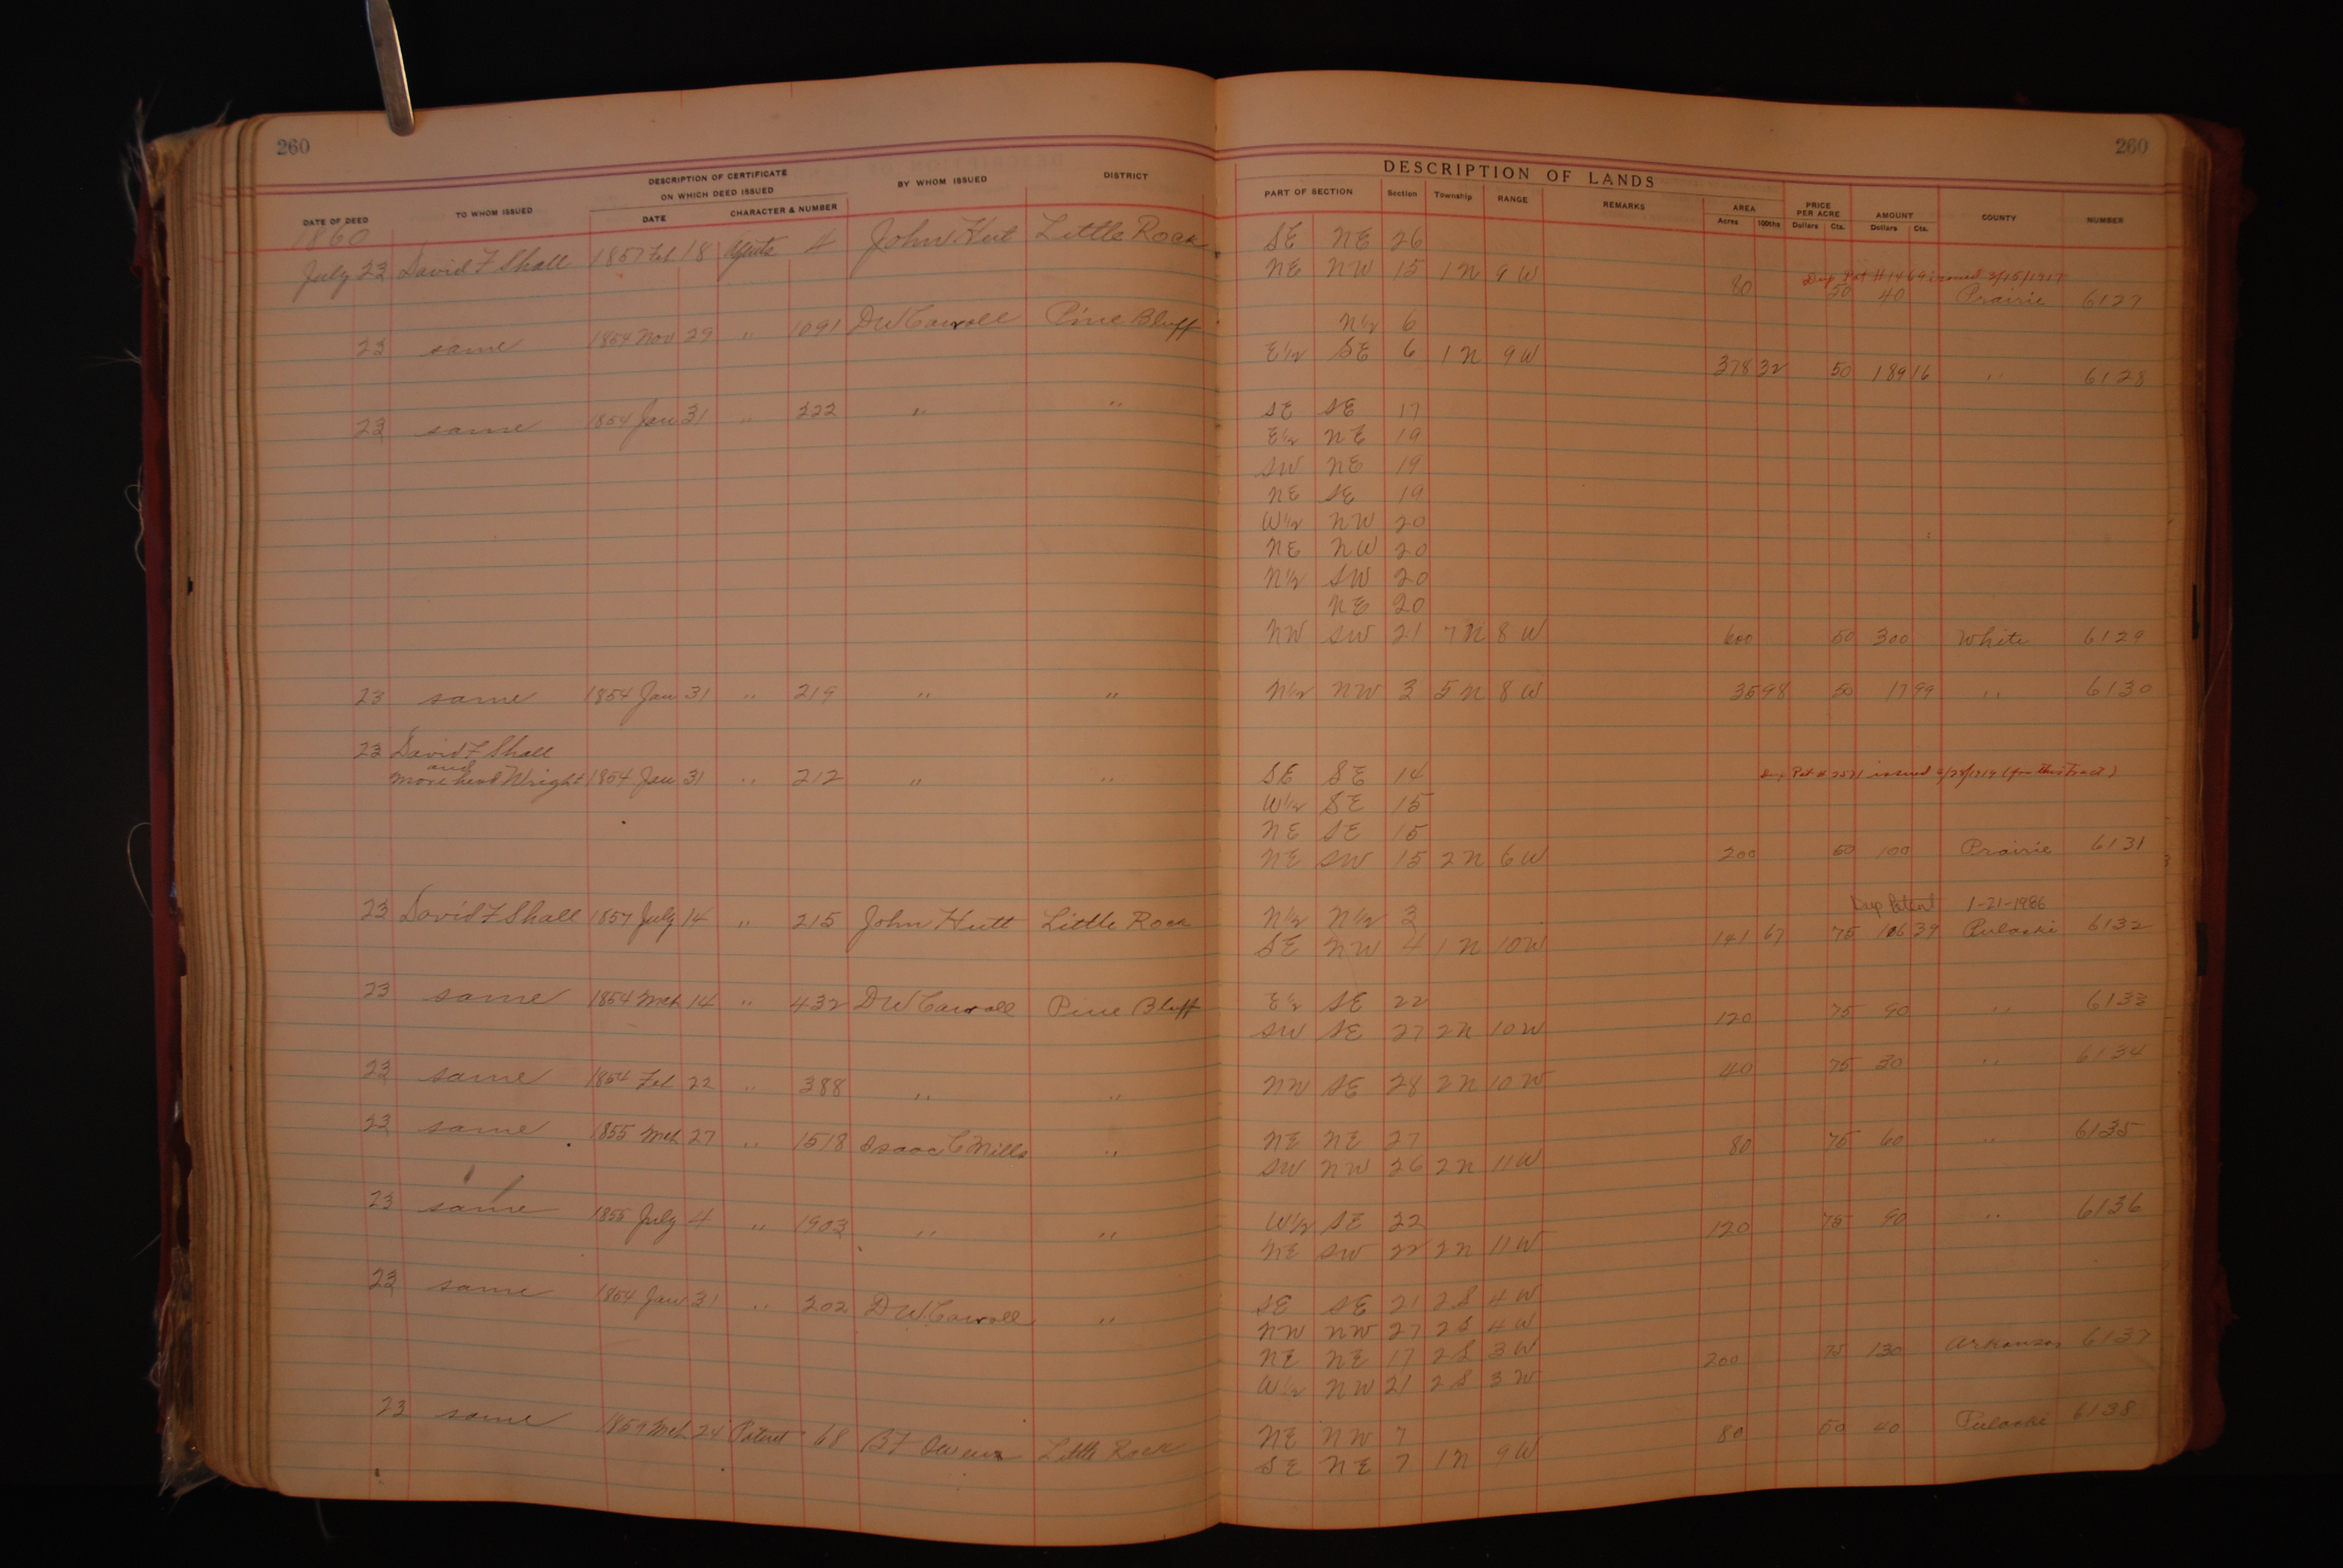 260
DATE OF DEED TO WHOM ISSUED DESCRIPTION OF CERTIFICATE ON WHICH DEED ISSUED DATE CHARACTER & NUMBER BY WHOM ISSUED DISTRICT
260
DESCRIPTION OF LANDS
PART OF SECTION Section Township RANGE REMARKS AREA Acres 100ths PRICE PER ACRE Dollars Cts. AMOUNT Dollars Cts. COUNTY NUMBER
1860
July 23 David F Shall 1857 Feb 18 Agents 4 John Hut Little Rock SE NE 26
NE NW 15 1 N 9 W 80 50 40 Prairie 6127
Dup Pat # 1469 issued 3/15/1917
23 same 1854 Nov 29 " 1091 DW Carroll Pine Bluff N½ 6
E½ SE 6 1 N 9 W 378 32 50 189 16 " 6128
23 same 1854 Jan 31 " 222 " " SE SE 17
E½ NE 19
SW NE 19
NE SE 19
W½ NW 20
NE NW 20
N½ SW 20
NE 20
NW SW 21 7 N 8 W 600 50 300 White 6129
23 same 1854 Jan 31 " 219 " " N½ NW 3 5 N 8 W 35 98 50 17 99 " 6130
23 David F Shall
and
Morehead Wright 1854 Jan 31 " 212 " " SE SE 14
Dup Pat # 2521 issued 2/28/1919 (for this Tract)
W½ SE 15
NE SE 15
NE SW 15 2 N 6 W 200 50 100 Prairie 6131
Dup Patent 1-21-1986
23 David F Shall 1857 July 14 " 215 John Hutt Little Rock N½ N½ 3
SE NW 4 1 N 10 W 141 67 75 106 39 Pulaski 6132
23 same 1854 Mch 14 " 432 DW Carroll Pine Bluff E½ SE 22
SW SE 27 2 N 10 W 120 75 90 " 6133
23 same 1854 Feb 22 " 388 " " NW SE 28 2 N 10 W 40 75 30 " 6134
23 same 1855 Mch 27 " 1518 Isaac C Mills " NE NE 27
SW NW 26 2 N 11 W 80 75 60 " 6135
23 same 1855 July 4 " 1903 " " W½ SE 22
NE SW 22 2 N 11 W 120 75 90 " 6136
23 same 1854 Jan 31 " 202 DW Carroll " SE SE 21 2 S 4 W
NW NW 27 2 S 4 W
NE NE 17 2 S 3 W
W½ NW 21 2 S 3 W 200 75 130 Arkansas 6137
23 same 1859 Mch 24 Patent 68 BF Owens Little Rock NE NW 7
SE NE 7 1 N 9 W 80 50 40 Pulaski 6138